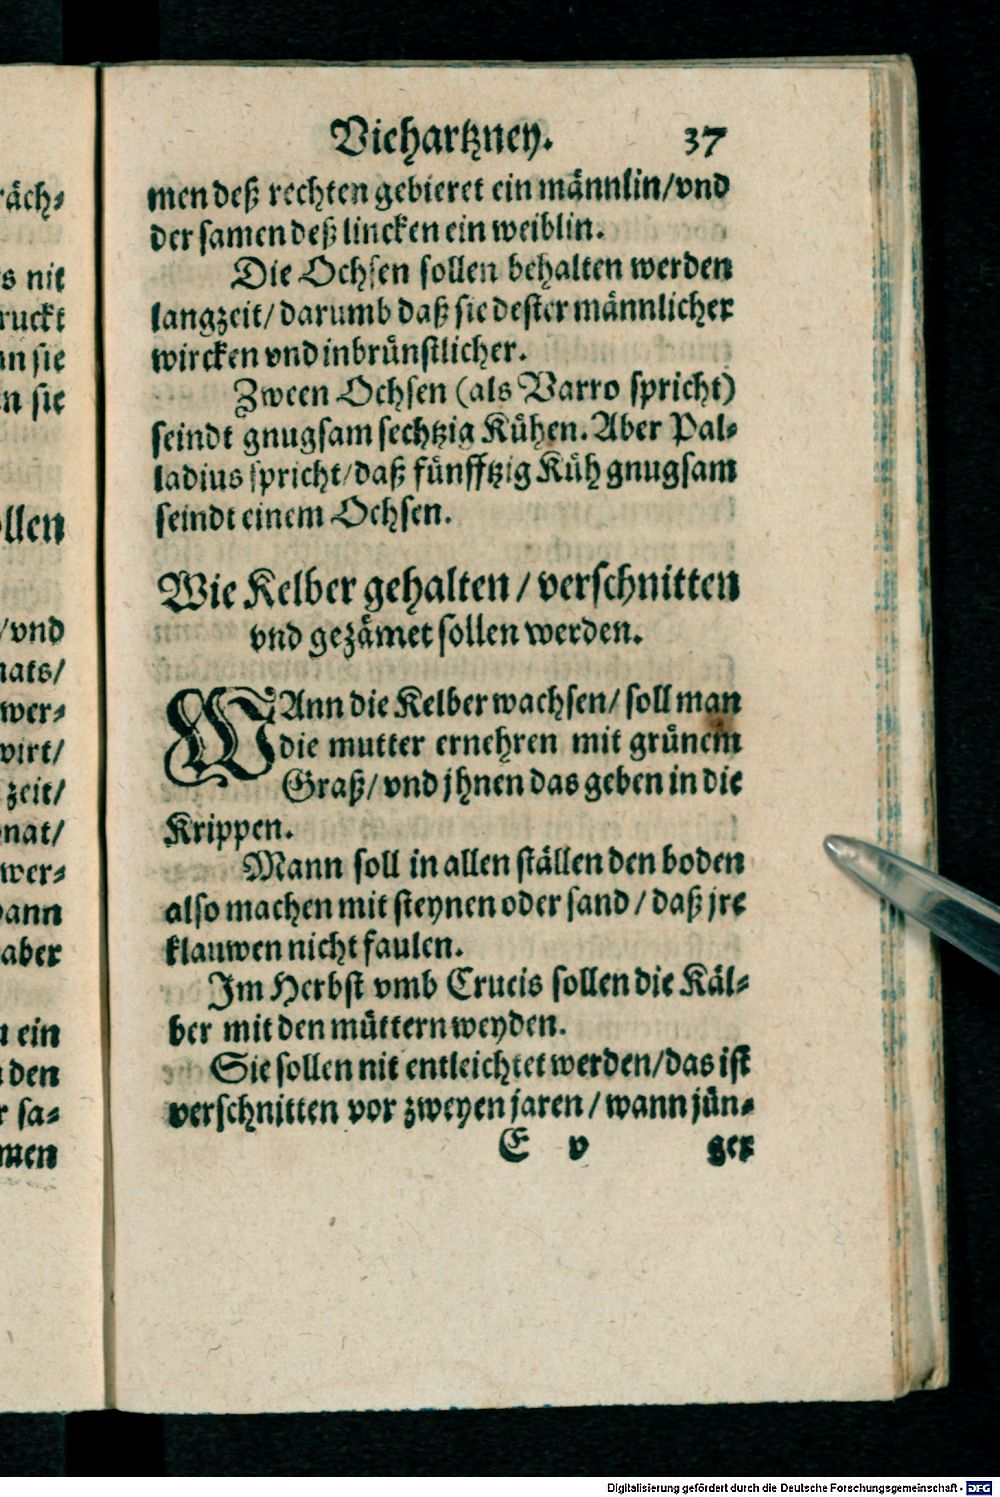 räch⸗
s nit
ruckt
nn sie
n sie
ollen
/vnd
nats/
wer⸗
wirt/
zeit/
nat/
wer⸗
dann
aber
n ein
den
r sa⸗
men
Viehartzney. 37
men deß rechten gebieret ein männlin/vnd
der samen deß lincken ein weiblin.
Die Ochsen sollen behalten werden
langzeit/ darumb daß sie dester männlicher
wircken vnd inbrünstlicher.
Zween Ochsen (als Varro spricht)
seindt gnugsam sechtzig Kühen. Aber Pal⸗
ladius spricht/daß fünfftzig Küh gnugsam
seindt einem Ochsen.
Wie Kelber gehalten / verschnitten
vnd gezämet sollen werden.
WAnn die Kelber wachsen/ soll man
die mutter ernehren mit grünem
Graß/ vnd jhnen das geben in die
Krippen.
Mann soll in allen ställen den boden
also machen mit steynen oder sand / daß jre
klauwen nicht faulen.
Im Herbst vmb Crucis sollen die Käl⸗
ber mit den müttern weyden.
Sie sollen nit entleichtet werden/das ist
verschnitten vor zweyen jaren / wann jün⸗
E v ger
Digitalisierung gefördert durch die Deutsche Forschungsgemeinschaft - DFG